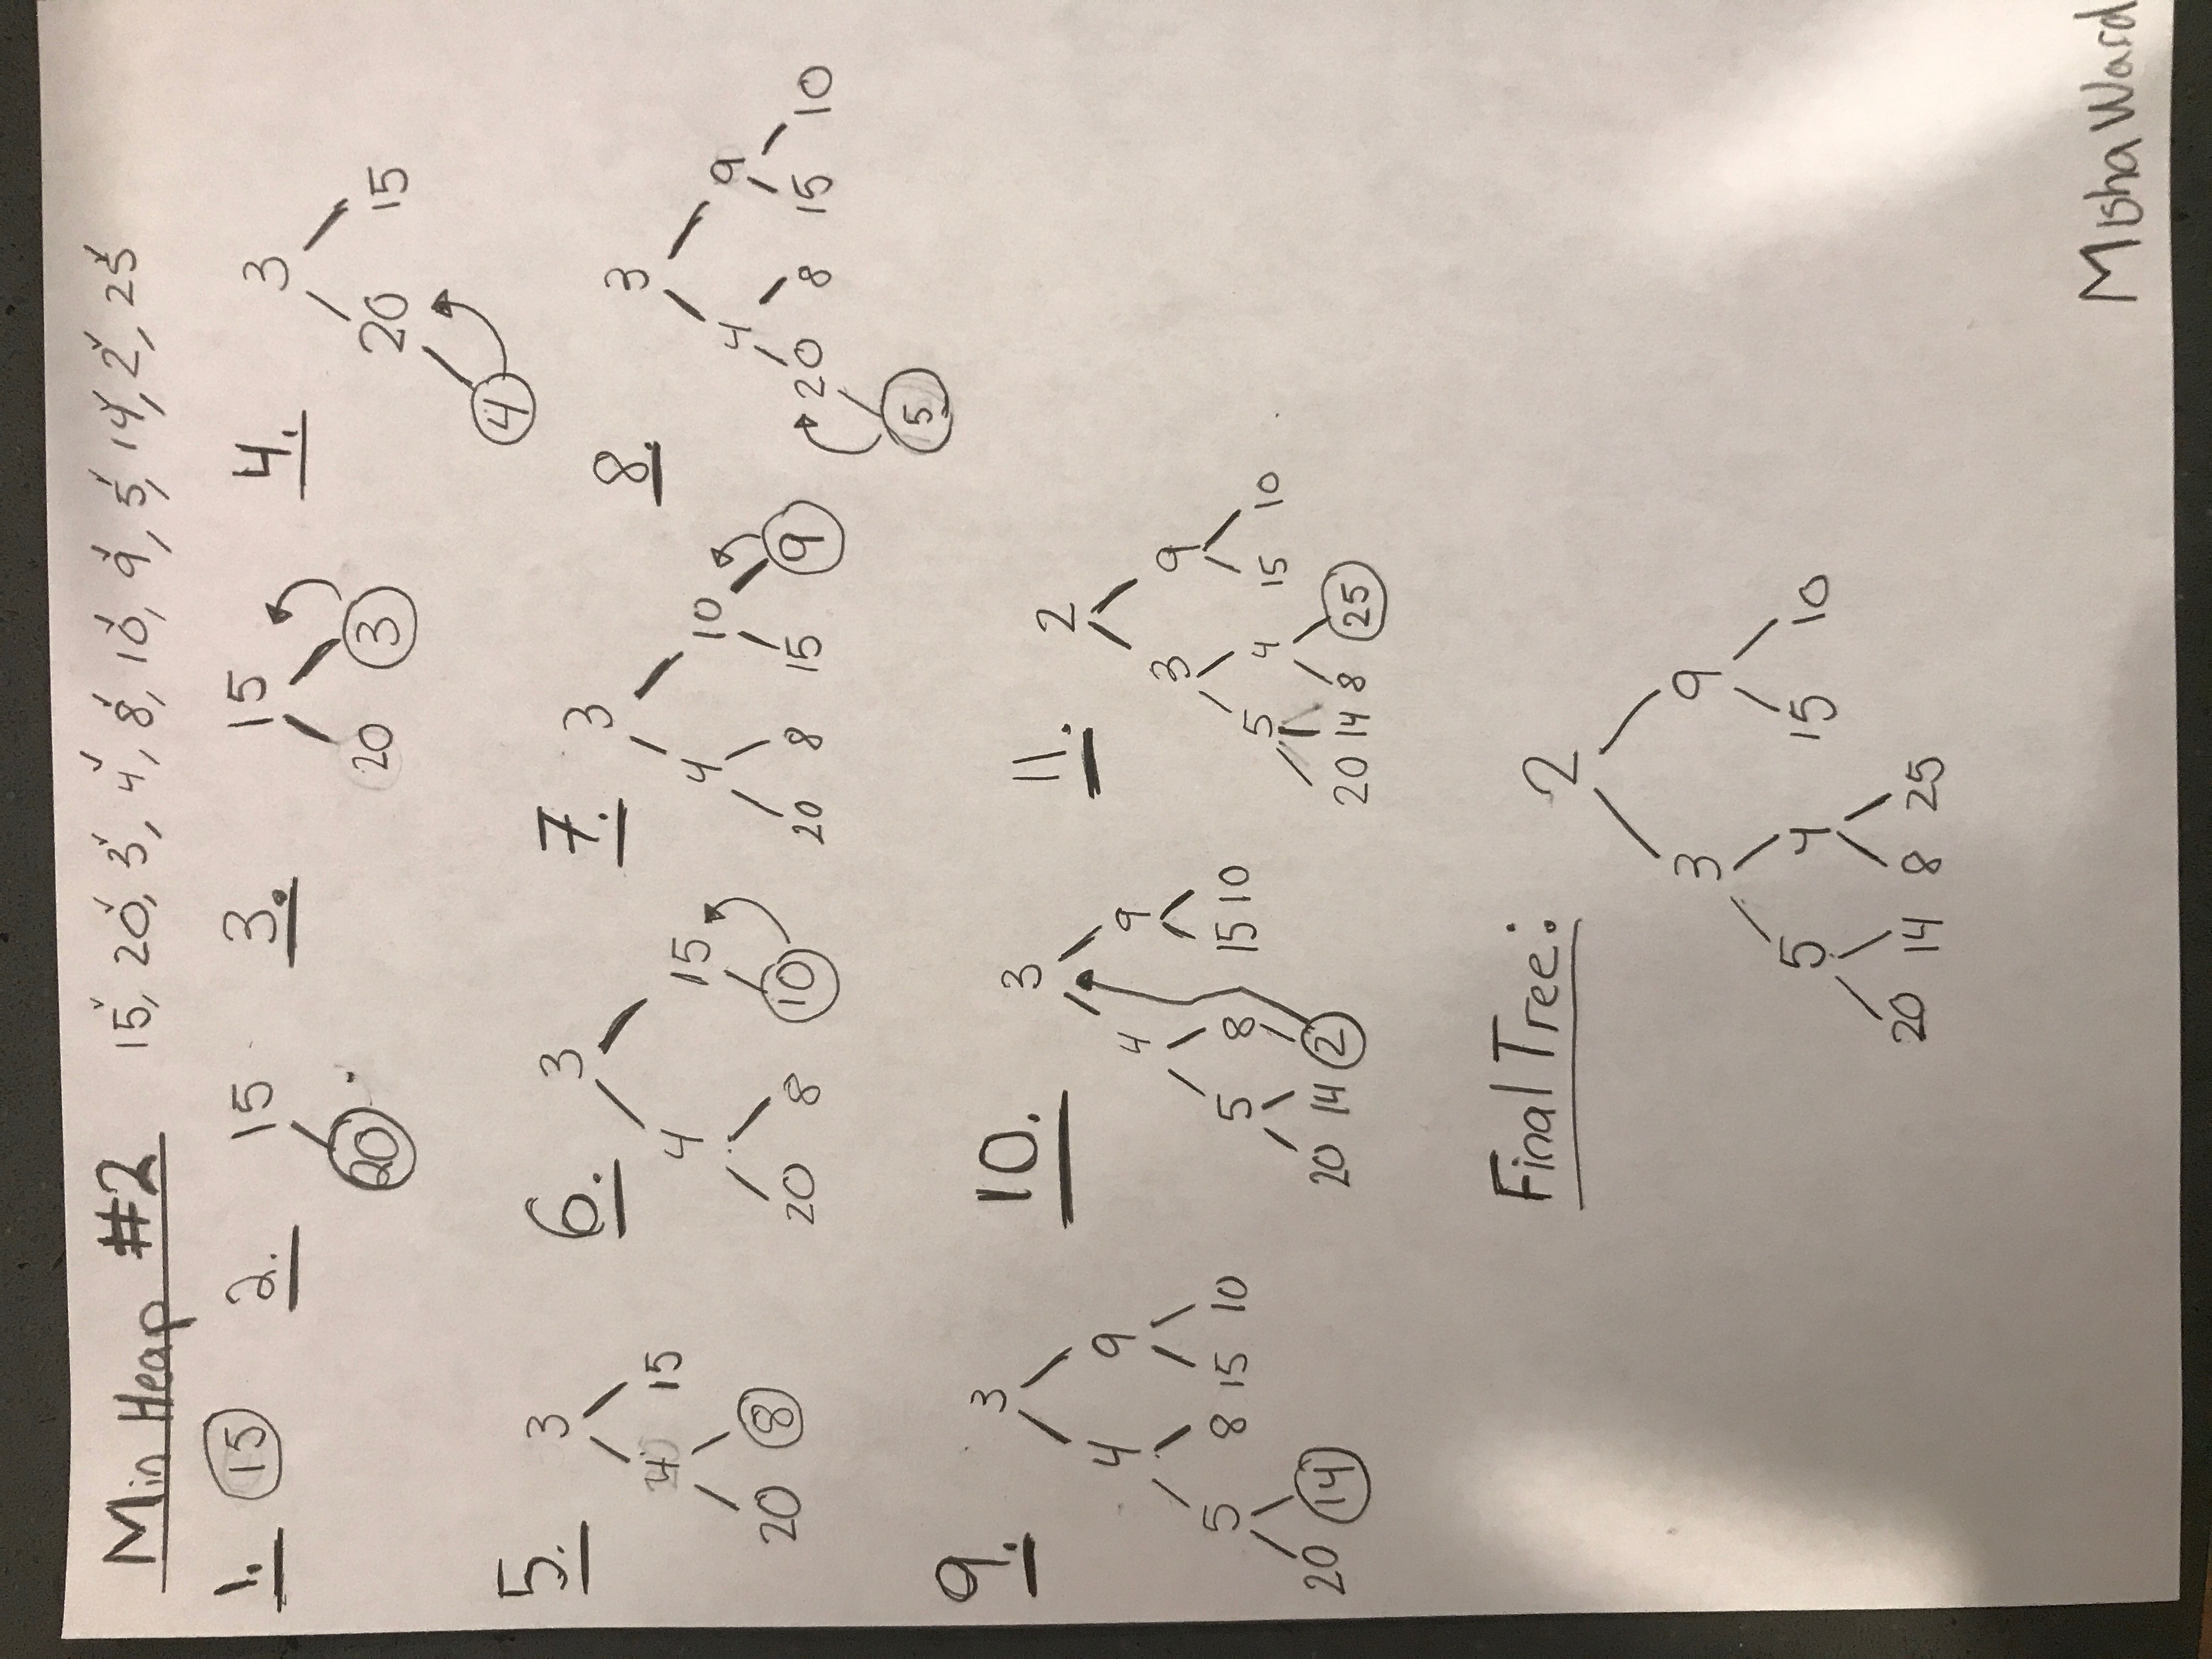 Min Heap #2 15, 20, 3, 4, 8, 10, 9, 5, 14, 2, 25
1. 15
2. 15
20
3. 15
20 3
4. 3
20 15
4
5. 3
4 15
20 8
6. 3
4 15
20 8 10
7. 3
4 10
20 8 15 9
8. 3
4 9
20 8 15 10
5
9. 3
4 9
5 8 15 10
20 14
10. 3
4 9
5 8 15 10
20 14 2
11. 2
3 9
5 4 15 10
20 14 8 25
Final Tree: 2
3 9
5 4 15 10
20 14 8 25
Misha Ward